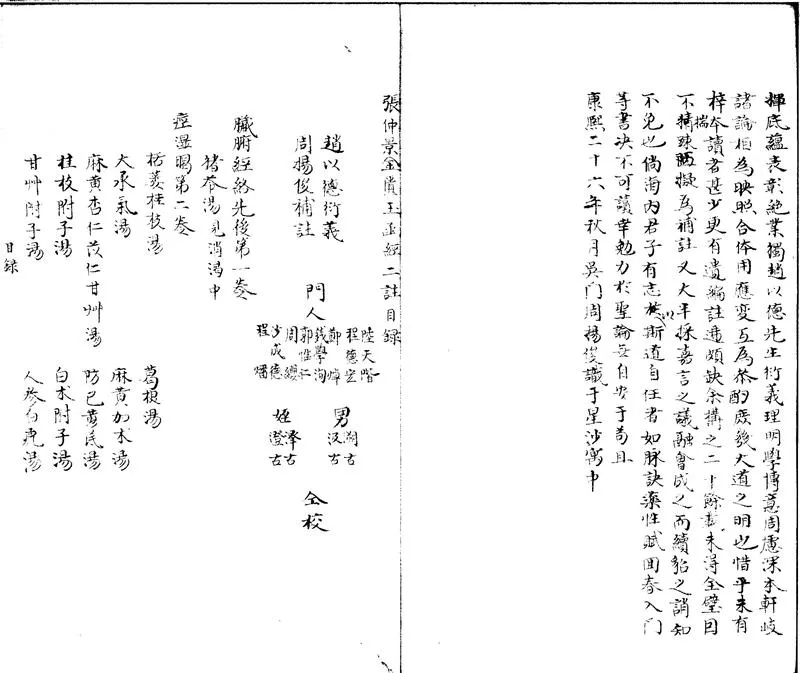 揮底蘊表彰絶業獨趙以德先生衍義理明學博意周慮深本軒岐
諸論相為映照合体用應変互為恭酌庶幾大道之明也惜乎未有
梓本讀者甚少更有遺編註遺頗缺余搆之二十餘載未得全璧因
不揣疎陋擬為補註又大半採嘉言之議融會成之而續貂之誚知
不免也倘海内君子有志於斯道以自任者如脉訣藥性賦回春入門
等書决不可讀幸勉力於聖論毋自安于苟且
康熙二十六年秋月吳門周揚俊識于星沙寓中
張仲景金匱玉函經二註目録
趙以德衍義
周揚俊補註
門人
陸天階
程德宏
鄭
錢學洵
郭惟仁
周纓
沙成德
程
男
朔古
汲古
姪
澤古
澄古
仝校
臟腑經絡先後第一卷
猪苓湯見消渴中
痙濕暍第二卷
栝蔞桂枝湯
葛根湯
大承氣湯
麻黄加术湯
麻黄杏仁苡仁甘艸湯
防已黄芪湯
桂枝附子湯
白术附子湯
甘艸附子湯
人參白虎湯
目録